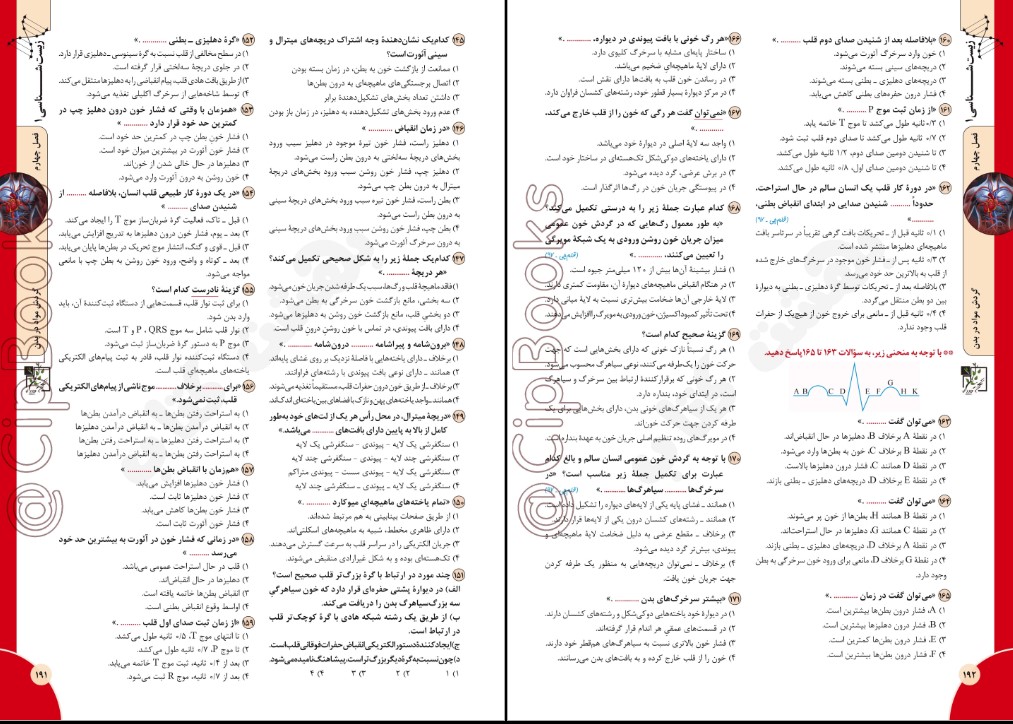 ۱۴۵ کدام‌یک نشان‌دهندهٔ وجه اشتراک دریچه‌های میترال و
سینی آئورت است؟
۱) ممانعت از بازگشت خون به بطن، در زمان بسته بودن
۲) اتصال برجستگی‌های ماهیچه‌ای به درون بطن‌ها
۳) داشتن تعداد بخش‌های تشکیل‌دهندهٔ برابر
۴) عدم ورود بخش‌های تشکیل‌دهنده به دهلیز، در زمان باز بودن
۱۴۶ «در زمان انقباض .......... »
۱) دهلیز راست، فشار خون تیرهٔ موجود در دهلیز سبب ورود
بخش‌های دریچهٔ سه‌لختی به درون بطن راست می‌شود.
۲) دهلیز چپ، فشار خون روشن سبب ورود بخش‌های دریچهٔ
میترال به درون بطن چپ می‌شود.
۳) بطن راست، فشار خون تیره سبب ورود بخش‌های دریچهٔ سینی
به درون بطن راست می‌شود.
۴) بطن چپ، فشار خون روشن سبب ورود بخش‌های دریچهٔ سینی
به درون سرخرگ آئورت می‌شود.
۱۴۷ کدام‌یک جملهٔ زیر را به شکل صحیحی تکمیل می‌کند؟
«هر دریچهٔ .......... .»
۱) فاقد ماهیچهٔ قلب و رگ‌ها، سبب یک طرفه شدن جریان خون می‌شود.
۲) سه بخشی، مانع بازگشت خون سرخرگی به بطن می‌شود.
۳) دو بخشی قلب، مانع بازگشت خون روشن به دهلیزها می‌شود.
۴) دارای بافت پیوندی، در تماس با خون روشن درون قلب است.
۱۴۸ «برون‌شامه و پیراشامه .......... درون‌شامه .......... .»
۱) برخلاف ـ دارای یاخته‌هایی با فاصلهٔ نزدیک بر روی غشای پایه‌اند.
۲) همانند ـ دارای نوعی بافت پیوندی با رشته‌های فراوانند.
۳) برخلاف ـ از طریق خون درون حفرات قلب، مستقیماً تغذیه می‌شوند.
۴) همانند ـ واجد یاخته‌های پهن و نازک با فضاهای بین یاخته‌ای اندک‌اند.
۱۴۹ «دریچهٔ میترال، در محل رأس هر یک از لت‌های خود به‌طور
کامل از بالا به پایین دارای بافت‌های .......... می‌باشد.»
۱) سنگفرشی یک لایه - پیوندی - سنگفرشی یک لایه
۲) سنگفرشی چند لایه - پیوندی - سنگفرشی چند لایه
۳) سنگفرشی یک لایه - پیوندی سست - پیوندی متراکم
۴) سنگفرشی یک لایه - پیوندی - سنگفرشی چند لایه
۱۵۰ «تمام یاخته‌های ماهیچه‌ای میوکارد .......... .»
۱) از طریق صفحات بینابینی به هم مرتبط شده‌اند.
۲) دارای ظاهری مخطط، شبیه به ماهیچه‌های اسکلتی‌اند.
۳) جریان الکتریکی را در سراسر قلب به سرعت گسترش می‌دهند.
۴) تک‌هسته‌ای بوده و به شکل غیرارادی منقبض می‌شوند.
۱۵۱ چند مورد در ارتباط با گرهٔ بزرگ‌تر قلب صحیح است؟
الف) در دیوارهٔ پشتی حفره‌ای قرار دارد که خون سیاهرگی
سه بزرگ سیاهرگ بدن را دریافت می‌کند.
ب) از طریق یک رشته شبکه هادی با گرهٔ کوچک‌تر قلب
در ارتباط است.
ج) ایجادکنندهٔ دستور الکتریکی انقباض حفرات فوقانی قلب است.
د) چون نسبت به گرهٔ دیگر بزرگ‌تر است، پیشاهنگ نامیده می‌شود.
۱) ۱ ۲) ۲ ۳) ۳ ۴) ۴
۱۵۲ «گرهٔ دهلیزی ـ بطنی .......... .»
۱) در سطح مخالفی از قلب نسبت به گرهٔ سینوسی ـ دهلیزی قرار دارد.
۲) در جلوی دریچهٔ سه‌لختی قرار گرفته است.
۳) از طریق بافت هادی قلب، پیام انقباضی را به دهلیزها منتقل می‌کند.
۴) توسط شاخه‌هایی از سرخرگ اکلیلی تغذیه می‌شود.
۱۵۳ «همزمان با وقتی که فشار خون درون دهلیز چپ در
کمترین حد خود قرار دارد .......... »
۱) فشار خون بطن چپ در کمترین حد خود است.
۲) فشار خون آئورت در بیشترین میزان خود است.
۳) دهلیزها در حال خالی شدن از خون‌اند.
۴) خون روشن به درون آئورت وارد می‌شود.
۱۵۴ «در یک دورهٔ کار طبیعی قلب انسان، بلافاصله .......... از
شنیدن صدای .......... »
۱) قبل ـ تاک، فعالیت گرهٔ ضربان‌ساز موج T را ایجاد می‌کند.
۲) بعد ـ پوم، فشار خون درون دهلیزها به تدریج افزایش می‌یابد.
۳) قبل ـ قوی و گنگ، انتشار موج تحریک در بطن‌ها پایان می‌یابد.
۴) بعد ـ کوتاه و واضح، ورود خون روشن به بطن چپ با مانعی
مواجه می‌شود.
۱۵۵ گزینهٔ نادرست کدام است؟
۱) برای ثبت نوار قلب، قسمت‌هایی از دستگاه ثبت‌کنندهٔ آن، باید
وارد بدن شود.
۲) نوار قلب شامل سه موج P ، QRS و T است.
۳) موج P به دستور گرهٔ ضربان‌ساز ثبت می‌شود.
۴) دستگاه ثبت‌کننده نوار قلب، قادر به ثبت پیام‌های الکتریکی
یاخته‌های ماهیچه‌ای قلب است.
۱۵۶ «برای .......... برخلاف .......... موج ناشی از پیام‌های الکتریکی
قلب، ثبت نمی‌شود.»
۱) به استراحت رفتن بطن‌ها ـ به انقباض درآمدن بطن‌ها
۲) به انقباض درآمدن بطن‌ها ـ به انقباض درآمدن دهلیزها
۳) به استراحت رفتن دهلیزها ـ به استراحت رفتن بطن‌ها
۴) به استراحت رفتن بطن‌ها ـ به انقباض درآمدن دهلیزها
۱۵۷ «هم‌زمان با انقباض بطن‌ها .......... »
۱) فشار خون دهلیزها افزایش می‌یابد.
۲) فشار خون دهلیزها ثابت است.
۳) فشار خون بطن‌ها کاهش می‌یابد.
۴) فشار خون آئورت ثابت است.
۱۵۸ «در زمانی که فشار خون در آئورت به بیشترین حد خود
می‌رسد .......... »
۱) قلب در حال استراحت عمومی می‌باشد.
۲) دهلیزها در حال انقباض‌اند.
۳) انقباض بطن‌ها خاتمه یافته است.
۴) اواسط وقوع انقباض بطنی است.
۱۵۹ «از زمان ثبت صدای اول قلب .......... .»
۱) تا انتهای موج T، ۰/۵ ثانیه طول می‌کشد.
۲) تا موج P، ۰/۷ ثانیه طول می‌کشد.
۳) بعد از ۰/۴ ثانیه، ثبت موج T خاتمه می‌یابد.
۴) بعد از ۰/۷ ثانیه، موج R ثبت می‌شود.
زیست‌شناسی ۱
فصل چهارم
گردش مواد در بدن
۱۹۱
۱۶۰ «بلافاصله بعد از شنیدن صدای دوم قلب .......... .»
۱) خون وارد سرخرگ آئورت می‌شود.
۲) دریچه‌های سینی بسته می‌شوند.
۳) دریچه‌های دهلیزی ـ بطنی بسته می‌شوند.
۴) فشار درون حفره‌های بطنی کاهش می‌یابد.
۱۶۱ «از زمان ثبت موج P .......... .»
۱) ۰/۳ ثانیه طول می‌کشد تا موج T خاتمه یابد.
۲) ۰/۷ ثانیه طول می‌کشد تا صدای دوم قلب ثبت شود.
۳) تا شنیدن دومین صدای دوم، ۱/۲ ثانیه طول می‌کشد.
۴) تا شنیدن دومین صدای اول، ۰/۸ ثانیه طول می‌کشد.
۱۶۲ «در دورهٔ کار قلب یک انسان سالم در حال استراحت،
حدوداً .......... شنیدن صدایی در ابتدای انقباض بطنی،
.......... .»
۱) ۰/۱ ثانیه قبل از ـ تحریکات بافت گرهی تقریباً در سرتاسر بافت
ماهیچه‌ای دهلیزها منتشر شده است.
۲) ۰/۳ ثانیه پس از ـ فشار خون موجود در سرخرگ‌های خارج شده
از قلب به بالاترین حد خود می‌رسد.
۳) بلافاصله بعد از ـ تحریکات توسط گرهٔ دهلیزی ـ بطنی به دیوارهٔ
بین دو بطن منتقل می‌گردد.
۴) ۰/۴ ثانیه قبل از ـ مانعی برای خروج خون از هیچ‌یک از حفرات
قلب وجود ندارد.
** با توجه به منحنی زیر، به سؤالات ۱۶۳ تا ۱۶۵ پاسخ دهید.
A B C D E F G H K
۱۶۳ «می‌توان گفت .......... .»
۱) در نقطهٔ A برخلاف B، دهلیزها در حال انقباض‌اند.
۲) در نقطهٔ B برخلاف C، خون به بطن‌ها وارد می‌شود.
۳) در نقطهٔ D همانند C، فشار درون دهلیزها بالاست.
۴) در نقطهٔ E برخلاف D، دریچه‌های دهلیزی ـ بطنی بازند.
۱۶۴ «می‌توان گفت .......... .»
۱) در نقطهٔ B همانند H، بطن‌ها از خون پر می‌شوند.
۲) در نقطهٔ C همانند G، دهلیزها در حال استراحت‌اند.
۳) در نقطهٔ A برخلاف D، دریچه‌های دهلیزی ـ بطنی بازند.
۴) در نقطهٔ G برخلاف D، مانعی برای ورود خون سرخرگی به بطن
وجود دارد.
۱۶۵ «می‌توان گفت در زمان .......... .»
۱) A، فشار درون بطن‌ها بیشترین است.
۲) B، فشار درون دهلیزها بیشترین است.
۳) E، فشار درون بطن‌ها کمترین است.
۴) F، فشار درون بطن‌ها بیشترین است.
۱۶۶ «هر رگ خونی با بافت پیوندی در دیواره، .......... .»
۱) ساختار پایه‌ای مشابه با سرخرگ کلیوی دارد.
۲) دارای لایهٔ ماهیچه‌ای ضخیم می‌باشد.
۳) در رساندن خون قلب به بافت‌ها دارای نقش است.
۴) در مرکز دیوارهٔ بسیار قطور خود، رشته‌های کشسان فراوان دارد.
۱۶۷ «نمی‌توان گفت هر رگی که خون را از قلب خارج می‌کند،
.......... .»
۱) واجد سه لایهٔ اصلی در دیوارهٔ خود می‌باشد.
۲) دارای یاخته‌های دوکی‌شکل تک‌هسته‌ای در ساختار خود است.
۳) در برش عرضی، گرد دیده می‌شود.
۴) در پیوستگی جریان خون در رگ‌ها اثرگذار است.
۱۶۸ کدام عبارت جملهٔ زیر را به درستی تکمیل می‌کند؟
«به طور معمول رگ‌هایی که در گردش خون عمومی
میزان جریان خون روشن ورودی به یک شبکهٔ مویرگی
را تعیین می‌کنند، .......... .»
۱) فشار بیشینهٔ آن‌ها بیش از ۱۲۰ میلی‌متر جیوه است.
۲) در هنگام انقباض ماهیچه‌های دیوارهٔ آن، مقاومت کمتری دارند.
۳) لایهٔ خارجی آن‌ها ضخامت بیش‌تری نسبت به لایهٔ میانی دارد.
۴) تحت تأثیر کمبود اکسیژن، خون ورودی به مویرگ را افزایش می‌دهند.
۱۶۹ گزینهٔ صحیح کدام است؟
۱) هر رگ نسبتاً نازک خونی که دارای بخش‌هایی است که جهت
حرکت خون را یک‌طرفه می‌کنند، نوعی سیاهرگ محسوب می‌شود.
۲) هر رگ خونی که برقرارکنندهٔ ارتباط بین سرخرگ و سیاهرگ
است، در ابتدای خود، بنداره دارد.
۳) هر یک از سیاهرگ‌های خونی بدن، دارای بخش‌هایی برای یک
طرفه کردن جهت حرکت خون‌اند.
۴) در مویرگ‌های روده تنظیم اصلی جریان خون به عهدهٔ بنداره است.
۱۷۰ با توجه به گردش خون عمومی انسان سالم و بالغ کدام
عبارت برای تکمیل جملهٔ زیر مناسب است؟ «در
سرخرگ‌ها .......... سیاهرگ‌ها .......... .»
۱) همانند ـ غشای پایه یکی از لایه‌های دیواره را تشکیل داده است.
۲) همانند ـ رشته‌های کشسان درون یکی از لایه‌ها قرار دارند.
۳) برخلاف ـ مقطع عرضی به دلیل ضخامت لایهٔ ماهیچه‌ای و
پیوندی، بیش‌تر گرد دیده می‌شود.
۴) برخلاف ـ نمی‌توان دریچه‌هایی به منظور یک طرفه کردن
جهت جریان خون یافت.
۱۷۱ «بیشتر سرخرگ‌های بدن .......... .»
۱) در دیوارهٔ خود یاخته‌هایی دوکی‌شکل و رشته‌های کشسان دارند.
۲) در قسمت‌های عمقی هر اندام قرار گرفته‌اند.
۳) فشار خون بالاتری نسبت به سیاهرگ‌های هم‌قطر خود دارند.
۴) خون را از قلب خارج کرده و به بافت‌های بدن می‌رسانند.
زیست‌شناسی ۱
فصل چهارم
گردش مواد در بدن
۱۹۲
@CipBooks
@CipBooks